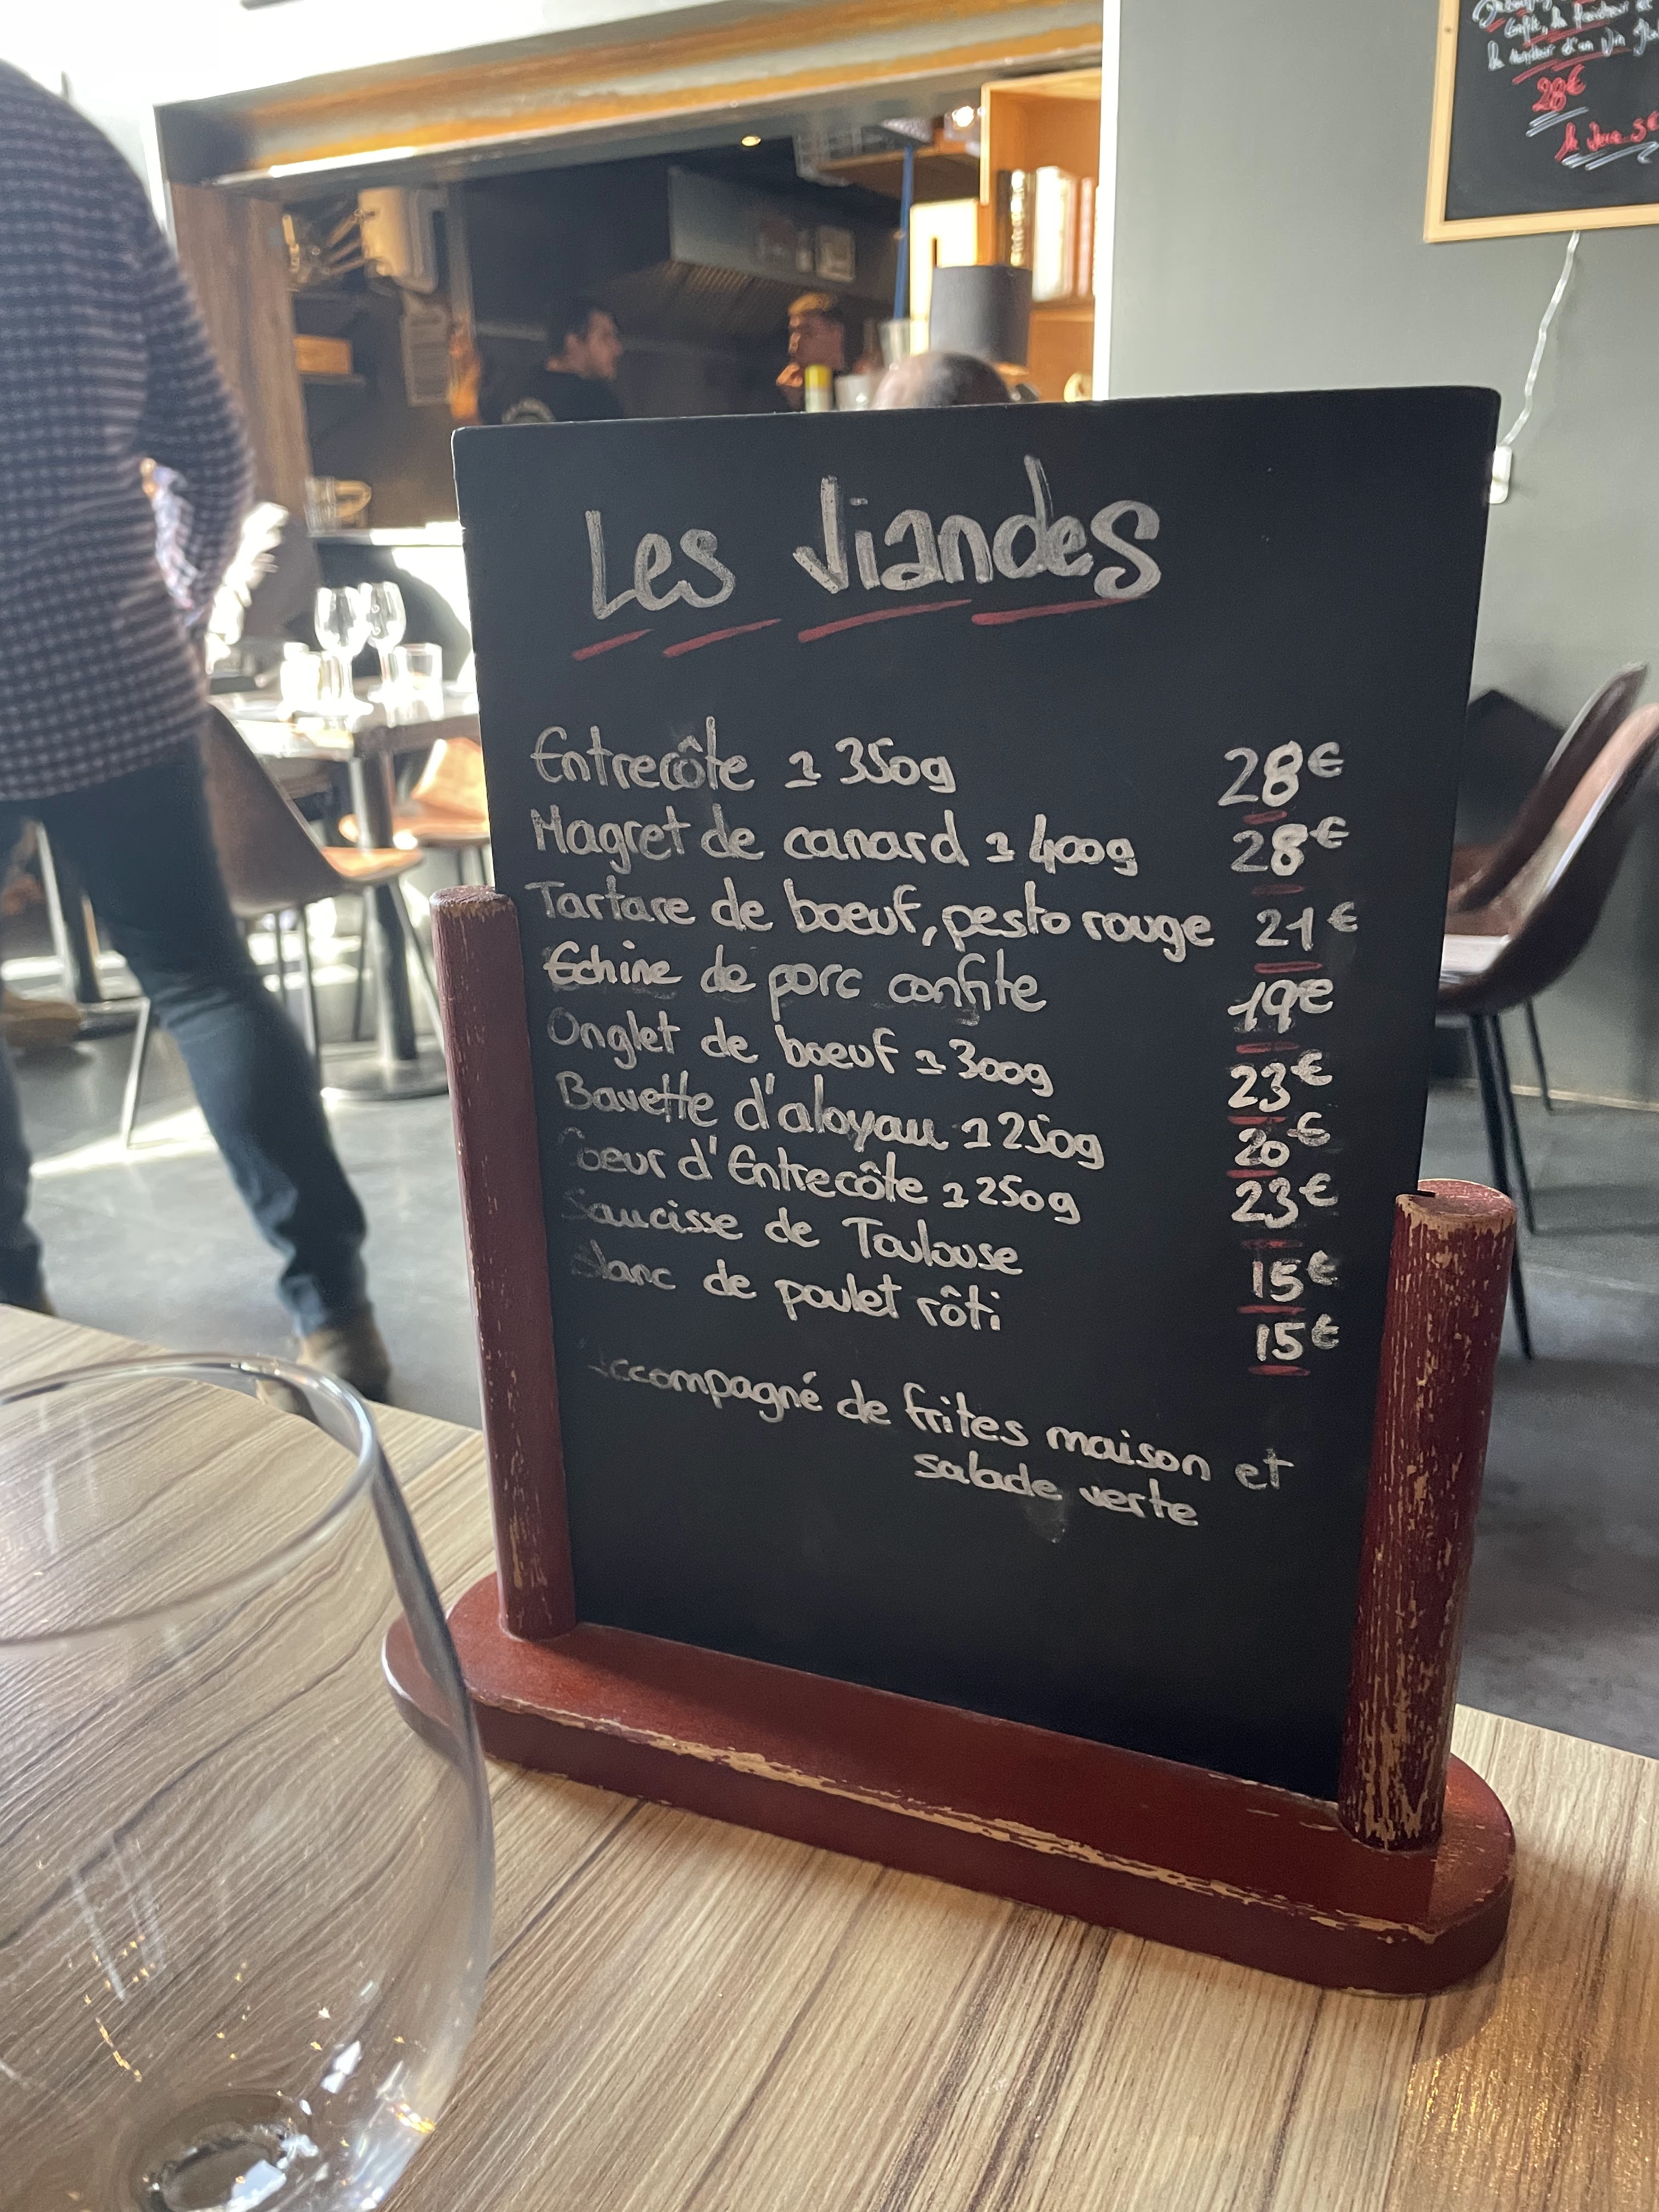 Les Viandes
Entrecôte ± 350g 28€
Magret de canard ± 400g 28€
Tartare de boeuf, pesto rouge 21€
Echine de porc confite 19€
Onglet de boeuf ± 300g 23€
Bavette d'aloyau ± 250g 20€
Coeur d'Entrecôte ± 250g 23€
Saucisse de Toulouse 15€
Blanc de poulet rôti 15€
Accompagné de frites maison et
salade verte
d'un Vin
28€